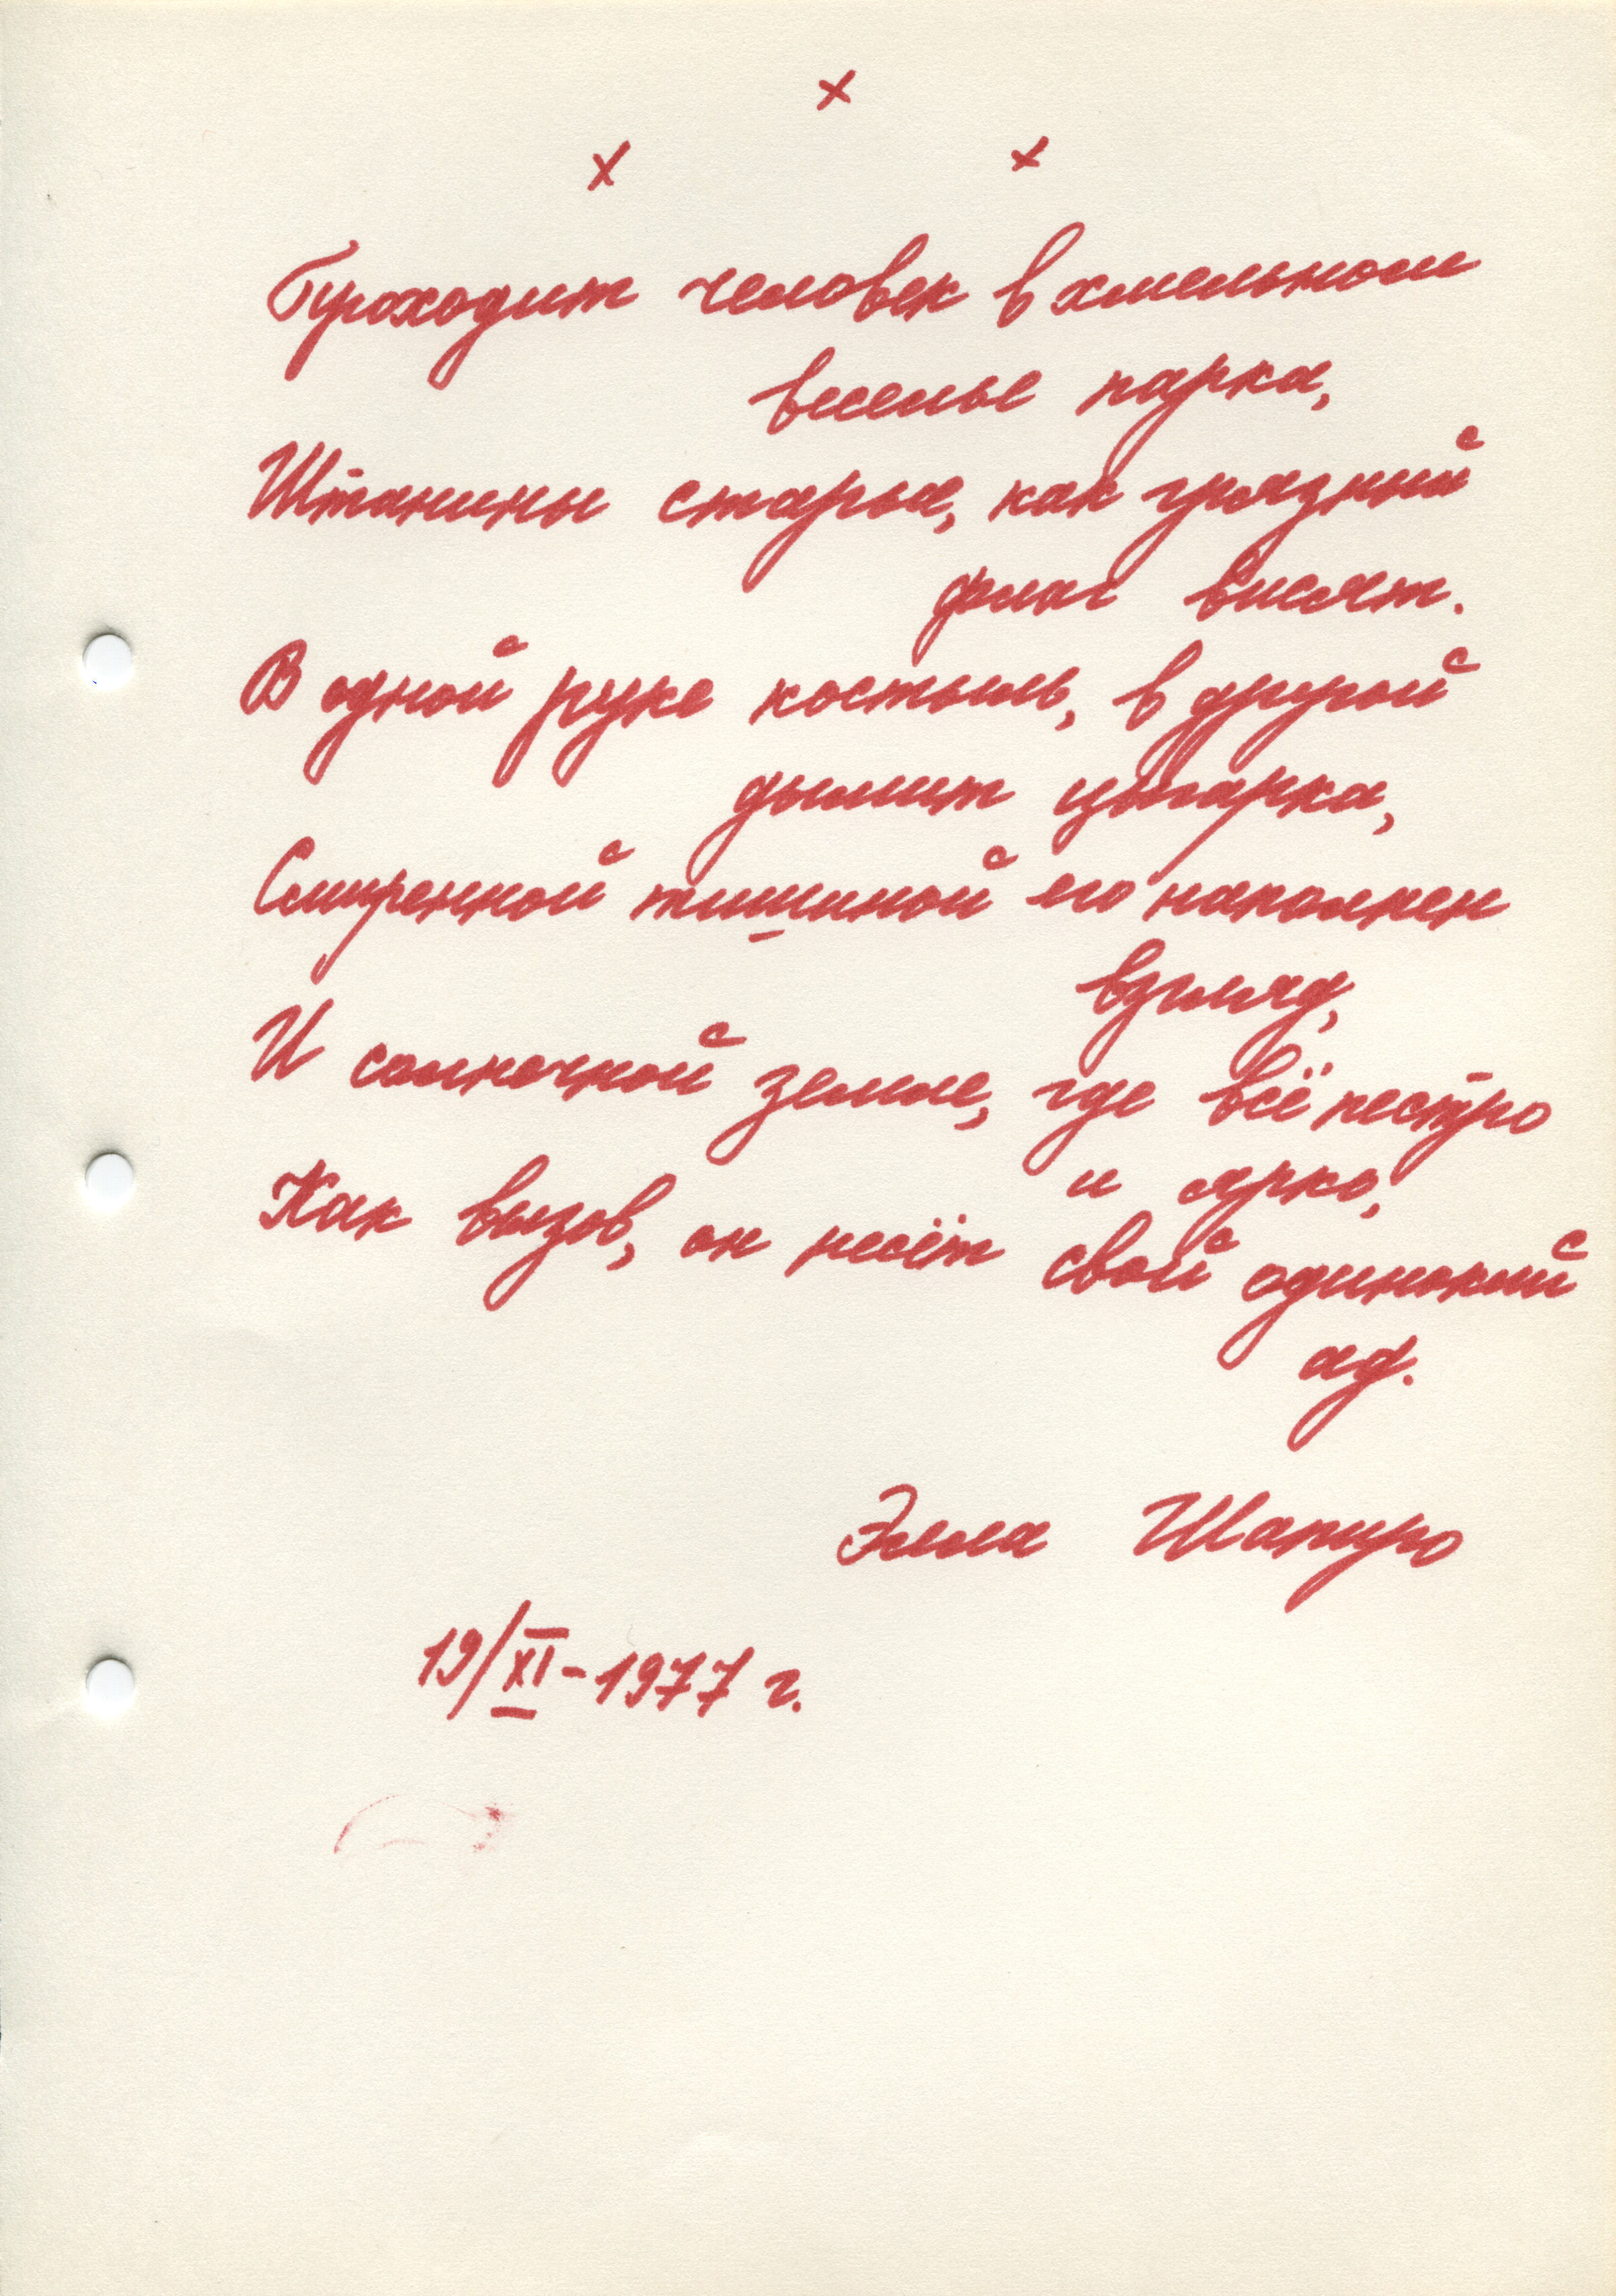 х
х х
Проходит человек в хмельном
веселье парка,
Штанины старые, как грязный
флаг висят.
В одной руке костыль, в другой
дымит цыгарка,
Смиренной тишиной его наполнен
взгляд,
И солнечной земле, где всё пестро
и ярко,
Как вызов, он несёт свой одинокий
ад.
Элла Шапиро
19/XI-1977 г.